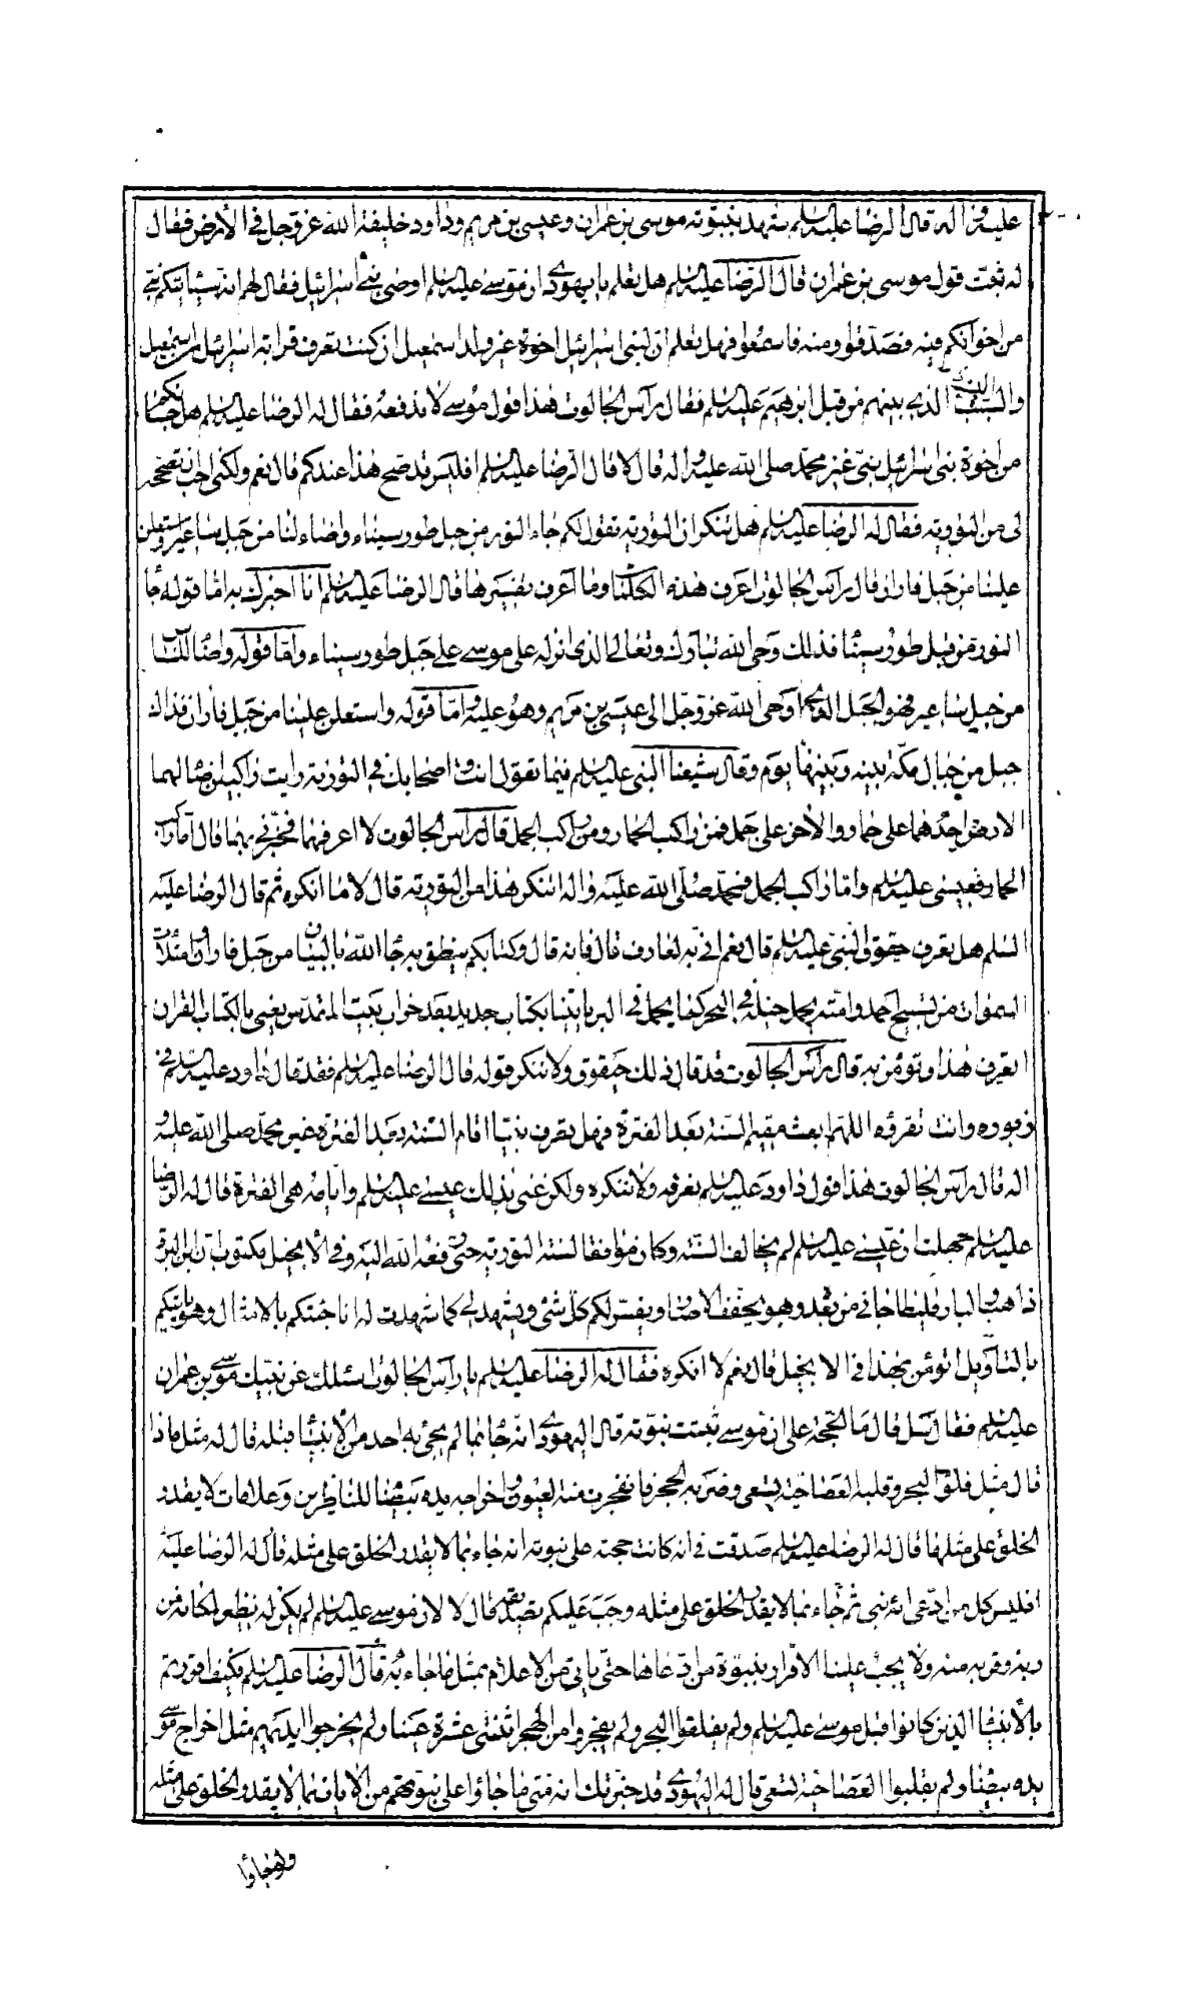 عليه واله قال الرضا عليه السلم شهد بنبوته موسى بن عمران وعيسى بن مريم وداود خليفة الله عز وجل في الأرض فقال
له ثبت قول موسى بن عمران قال الرضا عليه السلم هل تعلم يا يهودي ان موسى عليه السلم اوصى بني اسرائيل فقال لهم انه سيأتيكم نبي
من اخوانكم فبه فصدقوا ومنه فاسمعوا فهل تعلم ان لبني اسرائيل اخوة غير ولد اسمعيل ان كنت تعرف قرابة اسرائيل من اسمعيل
والنسب الذي بينهم من قبل ابرهيم عليه السلم فقال راس الجالوت هذا قول موسى لا ندفعه فقال له الرضا عليه السلم هل جاءكم
من اخوة بني اسرائيل نبي غير محمد صلى الله عليه واله قال لا قال الرضا عليه السلم افليس قد صح هذا عندكم قال نعم ولكني احب ان تصححه
لي من التورية فقال له الرضا عليه السلم هل تنكر ان التورية تقول لكم جاء النور من جبل طور سيناء واضاء لنا من جبل ساعير واستعلن
علينا من جبل فاران قال راس الجالوت اعرف هذه الكلمات وما اعرف تفسيرها قال الرضا عليه السلم انا اخبرك به اما قوله جاء
النور من قبل طور سيناء فذلك وحي الله تبارك وتعالى الذي انزله على موسى على جبل طور سيناء واما قوله واضاء للناس
من جبل ساعير فهو الجبل الذي اوحى الله عز وجل الى عيسى بن مريم وهو عليه واما قوله واستعلن علينا من جبل فاران فذاك
جبل من جبال مكة بينه وبينها يوم وقال شعيا النبي عليه السلم فيما تقول انت واصحابك في التورية رايت راكبين اضاء لهما
الارض احدهما على حمار والاخر على جمل فمن راكب الحمار ومن راكب الجمل قال راس الجالوت لا اعرفهما فخبرني بهما قال اما راكب
الحمار فعيسى عليه السلم واما راكب الجمل فمحمد صلى الله عليه واله اتنكر هذا من التورية قال لا ما انكره ثم قال الرضا عليه
السلم هل تعرف حيقوق النبي عليه السلم قال نعم اني به لعارف قال فانه قال وكتابكم ينطق به جاء الله بالبيان من جبل فاران وامتلأت
السموات من تسبيح احمد وامته يحمل خيله في البحر كما يحمل في البر ياتينا بكتاب جديد بعد خراب بيت المقدس يعني بالكتاب القران
اتعرف هذا وتؤمن به قال راس الجالوت قد قال ذلك حيقوق ولا ننكر قوله قال الرضا عليه السلم فقد قال داود عليه السلم في
زبوره وانت تقرؤه اللهم ابعث مقيم السنة بعد الفترة فهل تعرف نبيا اقام السنة بعد الفترة غير محمد صلى الله عليه و
اله قال راس الجالوت هذا قول داود عليه السلم نعرفه ولا ننكره ولكن عنى بذلك عيسى عليه السلم وايامه هي الفترة قال له الرضا
عليه السلم جهلت ان عيسى عليه السلم لم يخالف السنة وكان موافقا لسنة التورية حتى رفعه الله اليه وفي الانجيل مكتوب ان ابن البرة
ذاهب والبارقليطا جائي من بعده وهو يخفف الاصار ويفسر لكم كل شئ ويشهد لي كما شهدت له انا جئتكم بالامثال وهو ياتيكم
بالتاويل اتؤمن بهذا في الانجيل قال نعم لا انكره فقال له الرضا عليه السلم يا راس الجالوت اسئلك عن نبيك موسى بن عمران
عليه السلم فقال سل قال ما الحجة على ان موسى ثبتت نبوته قال اليهودي انه جاء بما لم يجئ به احد من الأنبياء قبله قال له مثل ماذا
قال مثل فلق البحر وقلبه العصا حية تسعى وضربه الحجر فانفجرت منه العيون واخراجه يده بيضاء للناظرين وعلامات لا يقدر
الخلق على مثلها قال له الرضا عليه السلم صدقت في انه كانت حجته على نبوته انه جاء بما لا يقدر الخلق على مثله قال له الرضا عليه
افليس كل من ادعى انه نبي ثم جاء بما لا يقدر الخلق على مثله وجب عليكم تصديقه قال لا لان موسى عليه السلم لم يكن له نظير لمكانه من
ربه وقربه منه ولا يجب علينا الاقرار بنبوة من ادعاها حتى ياتي من الاعلام بمثل ما جاء به قال الرضا عليه السلم فكيف اقررتم
بالأنبياء الذين كانوا قبل موسى عليه السلم ولم يفلقوا البحر ولم يفجروا من الحجر اثنتي عشرة عينا ولم يخرجوا ايديهم مثل اخراج موسى
يده بيضاء ولم يقلبوا العصا حية تسعى قال له اليهودي قد خبرتك انه متى ما جاؤا على نبوتهم من الايات بما لا يقدر الخلق على مثله
ولو جاؤا